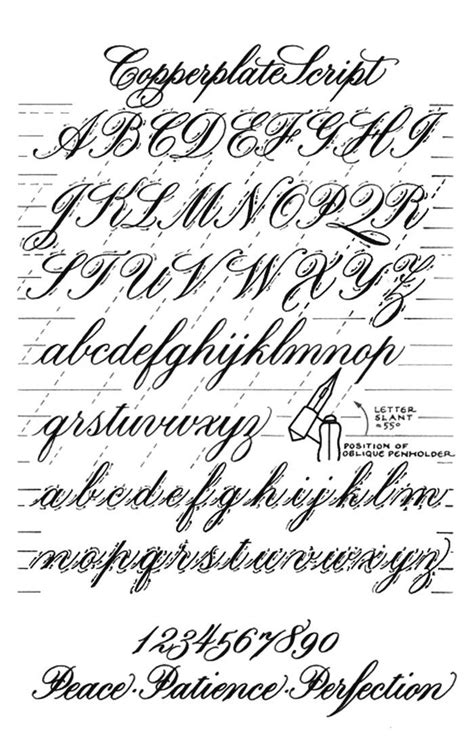 Copperplate Script
A B C D E F G H I
J K L M N O P Q R
S T U V W X Y Z Z
abcdefghijklmnop
qrstuvwxyz
LETTER
SLANT
=55°
POSITION OF
OBLIQUE PENHOLDER
abcdefghijklm
nopqrstuvwxyz
1234567890
Peace·Patience·Perfection